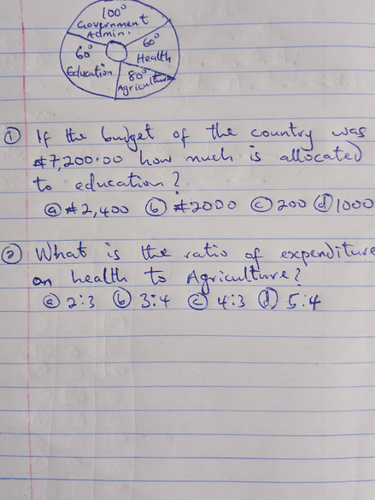 100°
Government
Admin.
60°
60°
Health
Education
80°
Agriculture
① If the budget of the country was
₦7,200.00 how much is allocated
to education?
ⓐ ₦2,400 ⓑ ₦2000 ⓒ 200 ⓓ 1000
② What is the ratio of expenditure
on health to Agriculture?
ⓐ 2:3 ⓑ 3:4 ⓒ 4:3 ⓓ 5:4